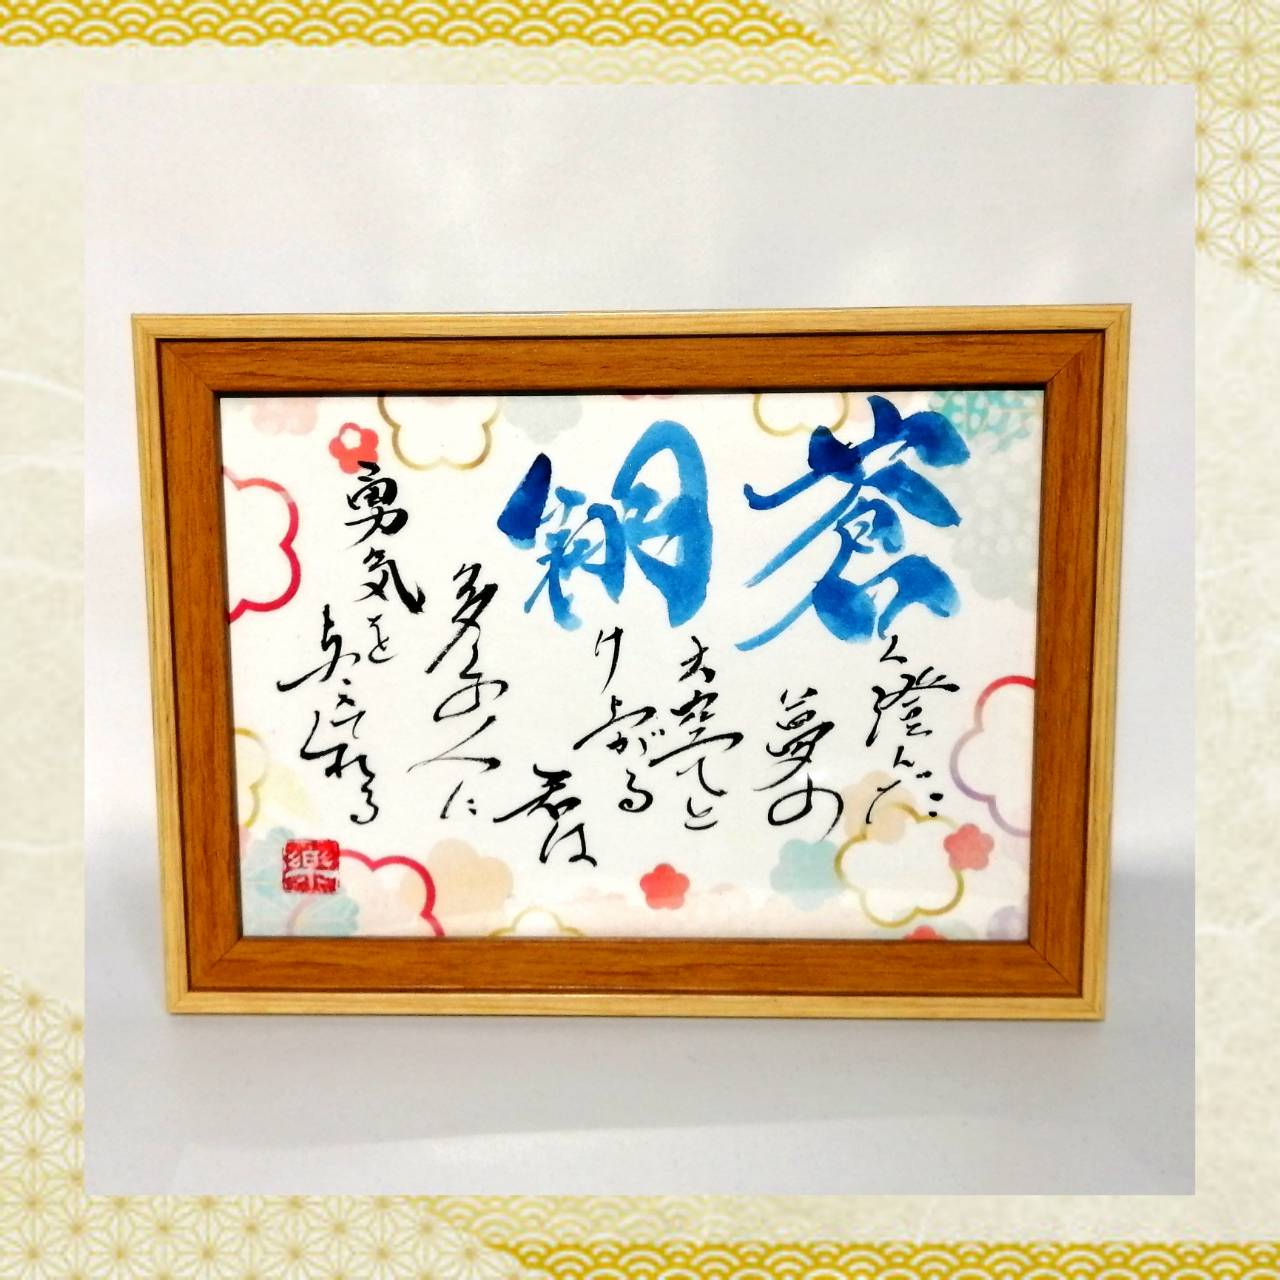 蒼
く澄んだ
夢の
大空へと
翔
け上がる
君は
多くの人に
勇気を
与えてくれる
樂